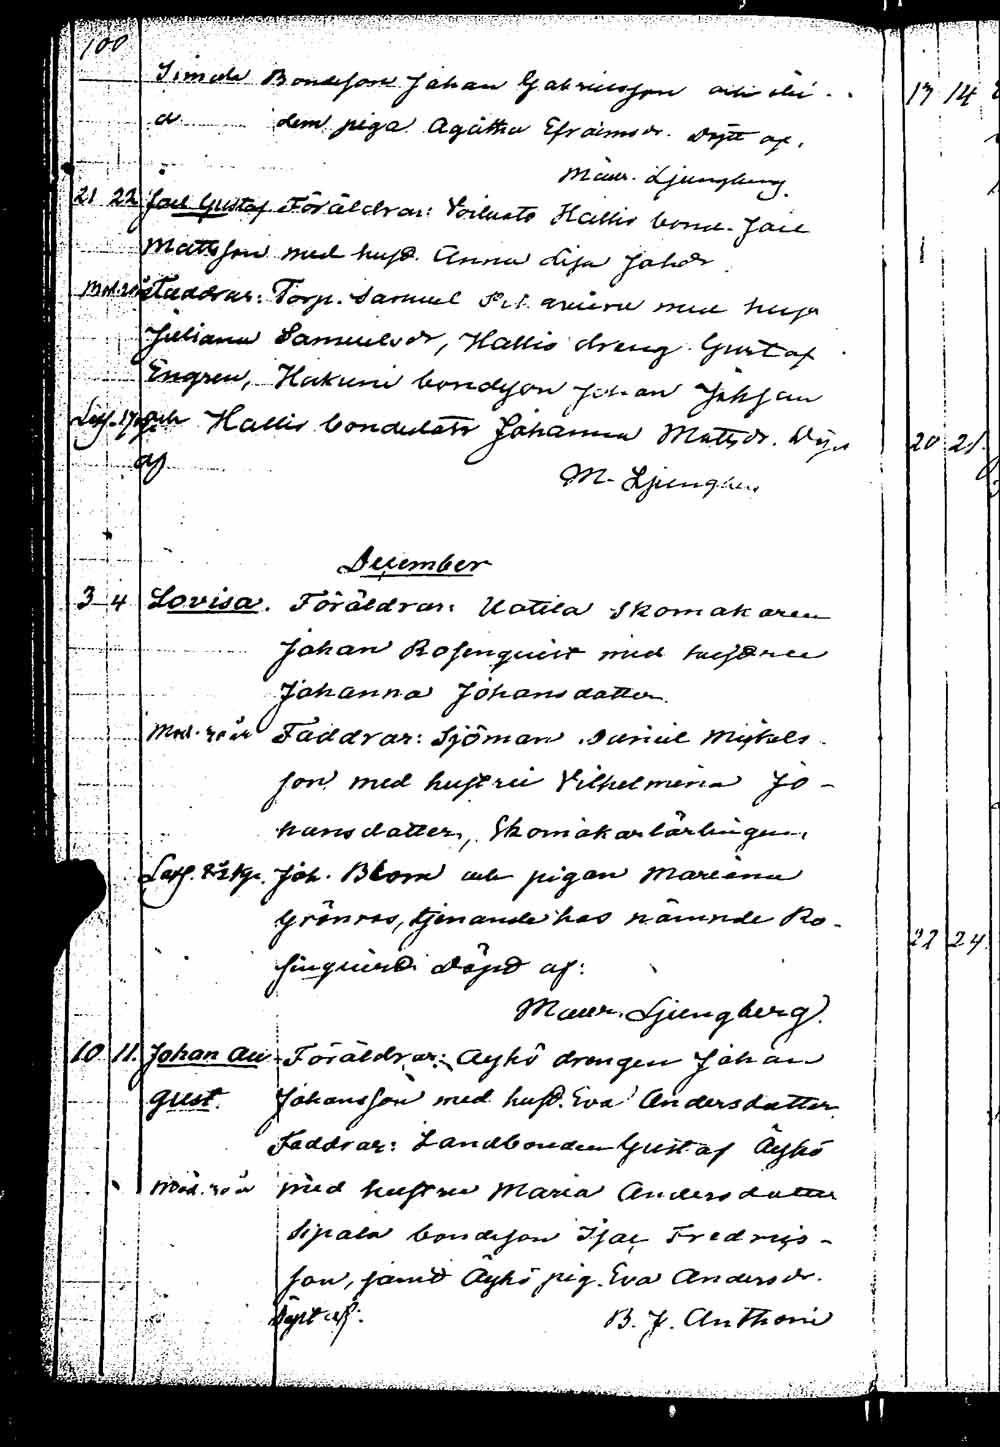 100
Bondeson Johan Gabrielsson och
dem piga Agatha Efraimsdr. Döpt af.
Maur. Ljungberg.
21 22 Joel Gustaf Föräldrar: Hallis bond. Joel
Mattsson med hust. Anna Lisa Johdr
Mod. Faddrar: Torp. Samuel med hust
Juliana Samuelsdr, Hallis dreng Gustaf
Engren, Hakuni bondeson Johan Johsson
och Hallis bondedottr Johanna Mattsdr. Döpt
af
M. Ljungberg
December
3 4 Lovisa. Föräldrar: Uotila Skomakaren
Johan Rosenquist med hustrun
Johanna Johansdatter.
Mod. 30 år Faddrar: Sjöman Daniel Mickels
son med hustru Vilhelmina Jo-
hansdatter, Skomakarlärlingen
Joh. Blom och pigan Mariana
Grönros, tjenande hos nämnde Ro-
senquist. Döpt af:
Maur. Ljungberg.
10 11. Johan Au- Föräldrar: Äyhö drengen Johan
gust. Johansson med hust. Eva Andersdatter
Faddrar: Landbonden Gustaf Äyhö
Mod. 30 år med hustru Maria Andersdatter
Sipala bondeson Isac Fredrics-
son, samt Äyhö pig. Eva Andersdr.
Döpt af: B. F. Anthoni
13 14
1
20 21.
22 24.